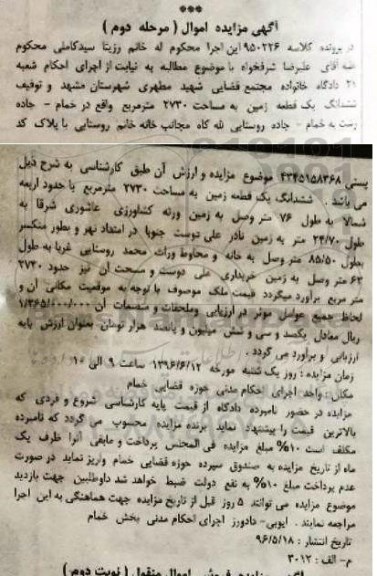 ***
آگهی مزایده اموال (مرحله دوم)
در پرونده کلاسه ۹۵۰۲۲۶ این اجرا محکوم له خانم رزیتا سیدکاملی محکوم
علیه آقای علیرضا شرفخواه با موضوع مطالبه به نیابت از اجرای احکام شعبه
۲۱ دادگاه خانواده مجتمع قضایی شهید مطهری شهرستان مشهد و توقیف
ششدانگ یک قطعه زمین به مساحت ۲۷۳۰ مترمربع واقع در خمام - جاده
رشت به خمام - جاده روستایی تله گاه مجانب خانه خانم روستایی با پلاک کد
پستی ۴۳۴۵۱۵۸۳۶۸ موضوع مزایده و ارزش آن طبق کارشناسی به شرح ذیل
می باشد . ششدانگ یک قطعه زمین به مساحت ۲۷۳۰ مترمربع با حدود اربعه
شمالا به طول ۷۶ متر وصل به زمین ورثه کشاورزی عاشوری شرقا به
طول ۲۴/۷۰ متر به زمین نادر علی توست جنوبا در امتداد نهر و بطور منکسر
بطول ۸۵/۵۰ متر وصل به خانه و محاوط وراث محمد روستایی غربا به طول
۶۳ متر وصل به زمین خریداری علی دوست و مساحت آن نیز حدود ۲۷۳۰
متر مربع برآورد میگردد قیمت ملک موصوف با توجه به موقعیت مکانی آن و
لحاظ جمیع عوامل موثر در ارزیابی وملحقات و منضمات آن ۱/۳۶۵/۰۰۰/۰۰۰
ریال معادل یکصد و سی و شش میلیون و پانصد هزار تومان بعنوان ارزش پایه
ارزیابی و برآورد می گردد .
زمان مزایده : روز یک شنبه مورخه ۱۳۹۶/۶/۱۲ ساعت ۹ الی ۱۰
مکان : واحد اجرای احکام مدنی حوزه قضایی خمام
مزایده در حضور نامبرده دادگاه از قیمت پایه کارشناسی شروع و فردی که
بالاترین قیمت را پیشنهاد نماید برنده مزایده محسوب می گردد که نامبرده
مکلف است ۱۰% مبلغ مزایده فی المجلس پرداخت و مابقی آنرا ظرف یک
ماه از تاریخ مزایده به صندوق سپرده حوزه قضایی خمام واریز نماید در صورت
عدم پرداخت مبلغ ۱۰% به نفع دولت ضبط خواهد شد داوطلبین جهت بازدید
موضوع مزایده می توانند ۵ روز قبل از تاریخ مزایده جهت هماهنگی به این اجرا
مراجعه نمایند . ایوبی- دادورز اجرای احکام مدنی بخش خمام
تاریخ انتشار : ۹۶/۵/۱۸
م- الف : ۳۰۱۲
آگهی مزایده فروش اموال منقول ( نوبت دوم )